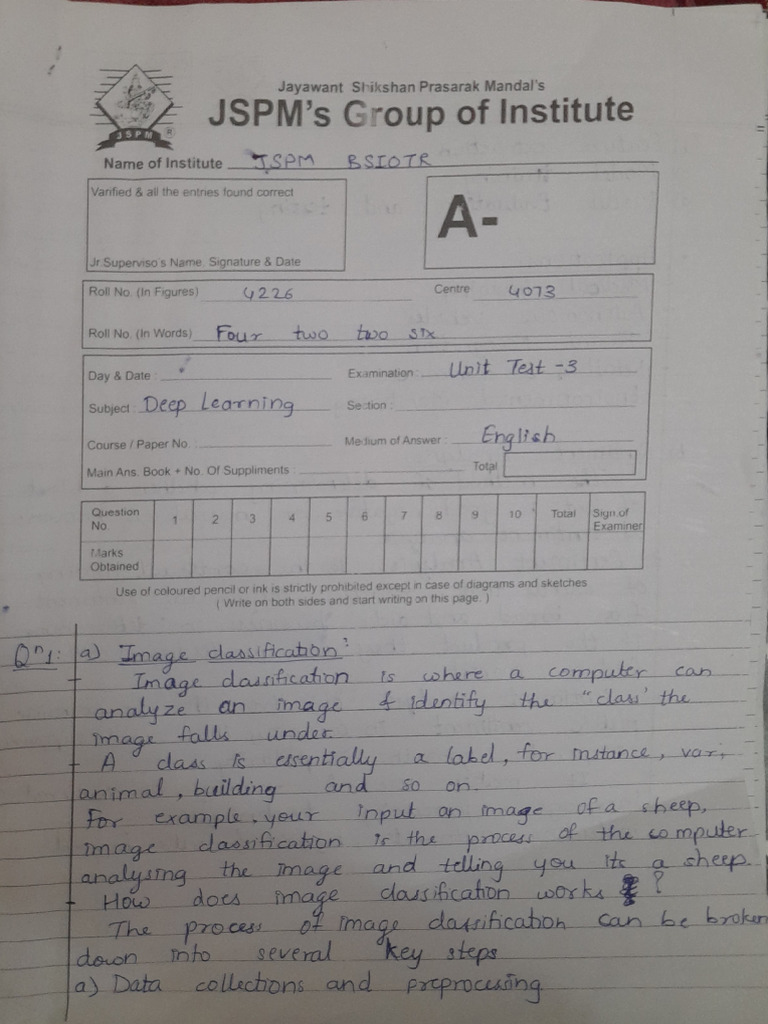 Jayawant Shikshan Prasarak Mandal's
JSPM's Group of Institute
JSPM ®
Name of Institute JSPM BSIOTR
Varified & all the entries found correct
A-
Jr.Superviso's Name, Signature & Date
Roll No. (In Figures) 4226 Centre 4073
Roll No. (In Words) Four two two six
Day & Date : Examination : Unit Test -3
Subject : Deep Learning Section :
Course / Paper No. : Medium of Answer : English
Main Ans. Book + No. Of Suppliments : Total
Question No. 1 2 3 4 5 6 7 8 9 10 Total Sign.of Examiner
Marks Obtained
Use of coloured pencil or ink is strictly prohibited except in case of diagrams and sketches
( Write on both sides and start writing on this page. )
Qn1: a) Image classification:
Image classification is where a computer can
analyze an image & identify the "class' the
image falls under
- A class is essentially a label, for instance, var,
animal, building and so on.
For example, your input an image of a sheep,
image classification is the process of the computer
analysing the image and telling you its a sheep.
- How does image classification works ?
The process of image classification can be broken
down into several key steps
a) Data collections and preprocessing